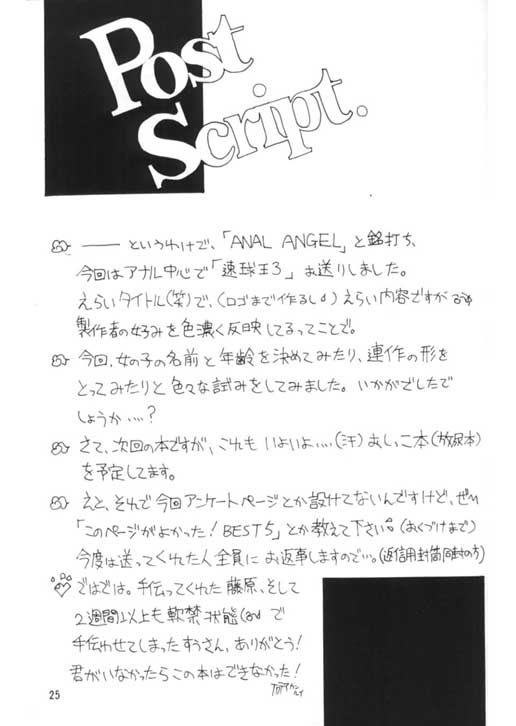 Post
Script.
—— というわけで、「ANAL ANGEL」と銘打ち、
今回はアナル中心で「速球王3」お送りしました。
えらいタイトル(笑)で、(ロゴまで作るし) えらい内容ですが
製作者の好みを色濃く反映してるってことで。
今回、女の子の名前と年齢を決めてみたり、連作の形を
とってみたりと色々な試みをしてみました。いかがでしたで
しょうか‥‥?
さて、次回の本ですが、これも いよいよ‥‥(汗) おしっこ本(放尿本)
を予定してます。
えと、それで今回アンケートページとか設けてないんですけど、ぜひ
「このページがよかった! BEST5」とか教えて下さい。(おくづけまで)
今度は送ってくれた人全員にお返事しますので‥。(返信用封筒同封の方)
ではでは。手伝ってくれた 藤原、そして
2週間以上も軟禁状態 で
手伝わせてしまったすうさん、ありがとう!
君がいなかったらこの本はできなかった!
25